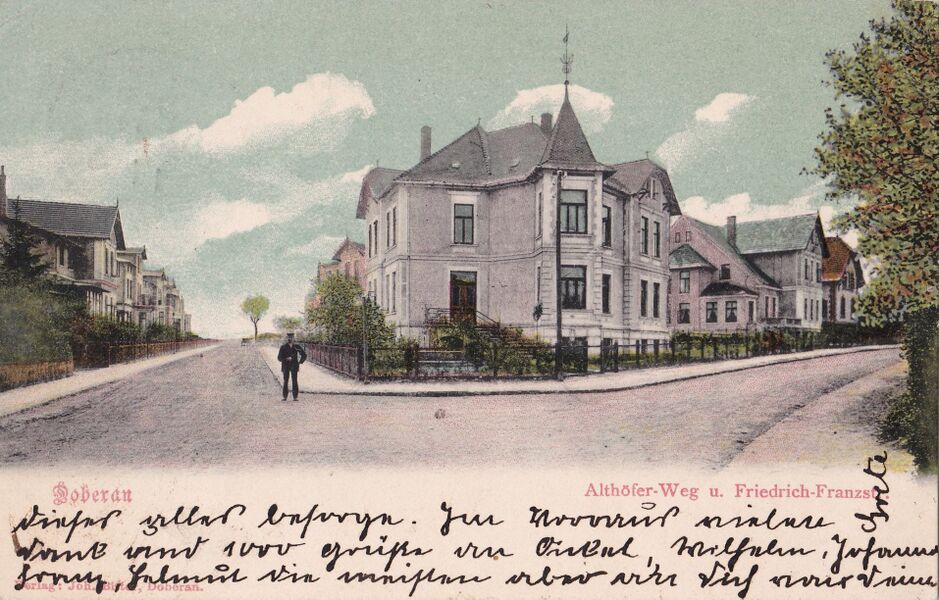 Doberan
Althöfer-Weg u. Friedrich-Franzstr.
dieses alles besorge. Im Voraus vielen
Dank und 1000 Grüße an Onkel, Wilhelm, Johanna
Franz, Helmut die meisten aber an Dich von Deine
Grete
Verlag: Joh. Doberan.